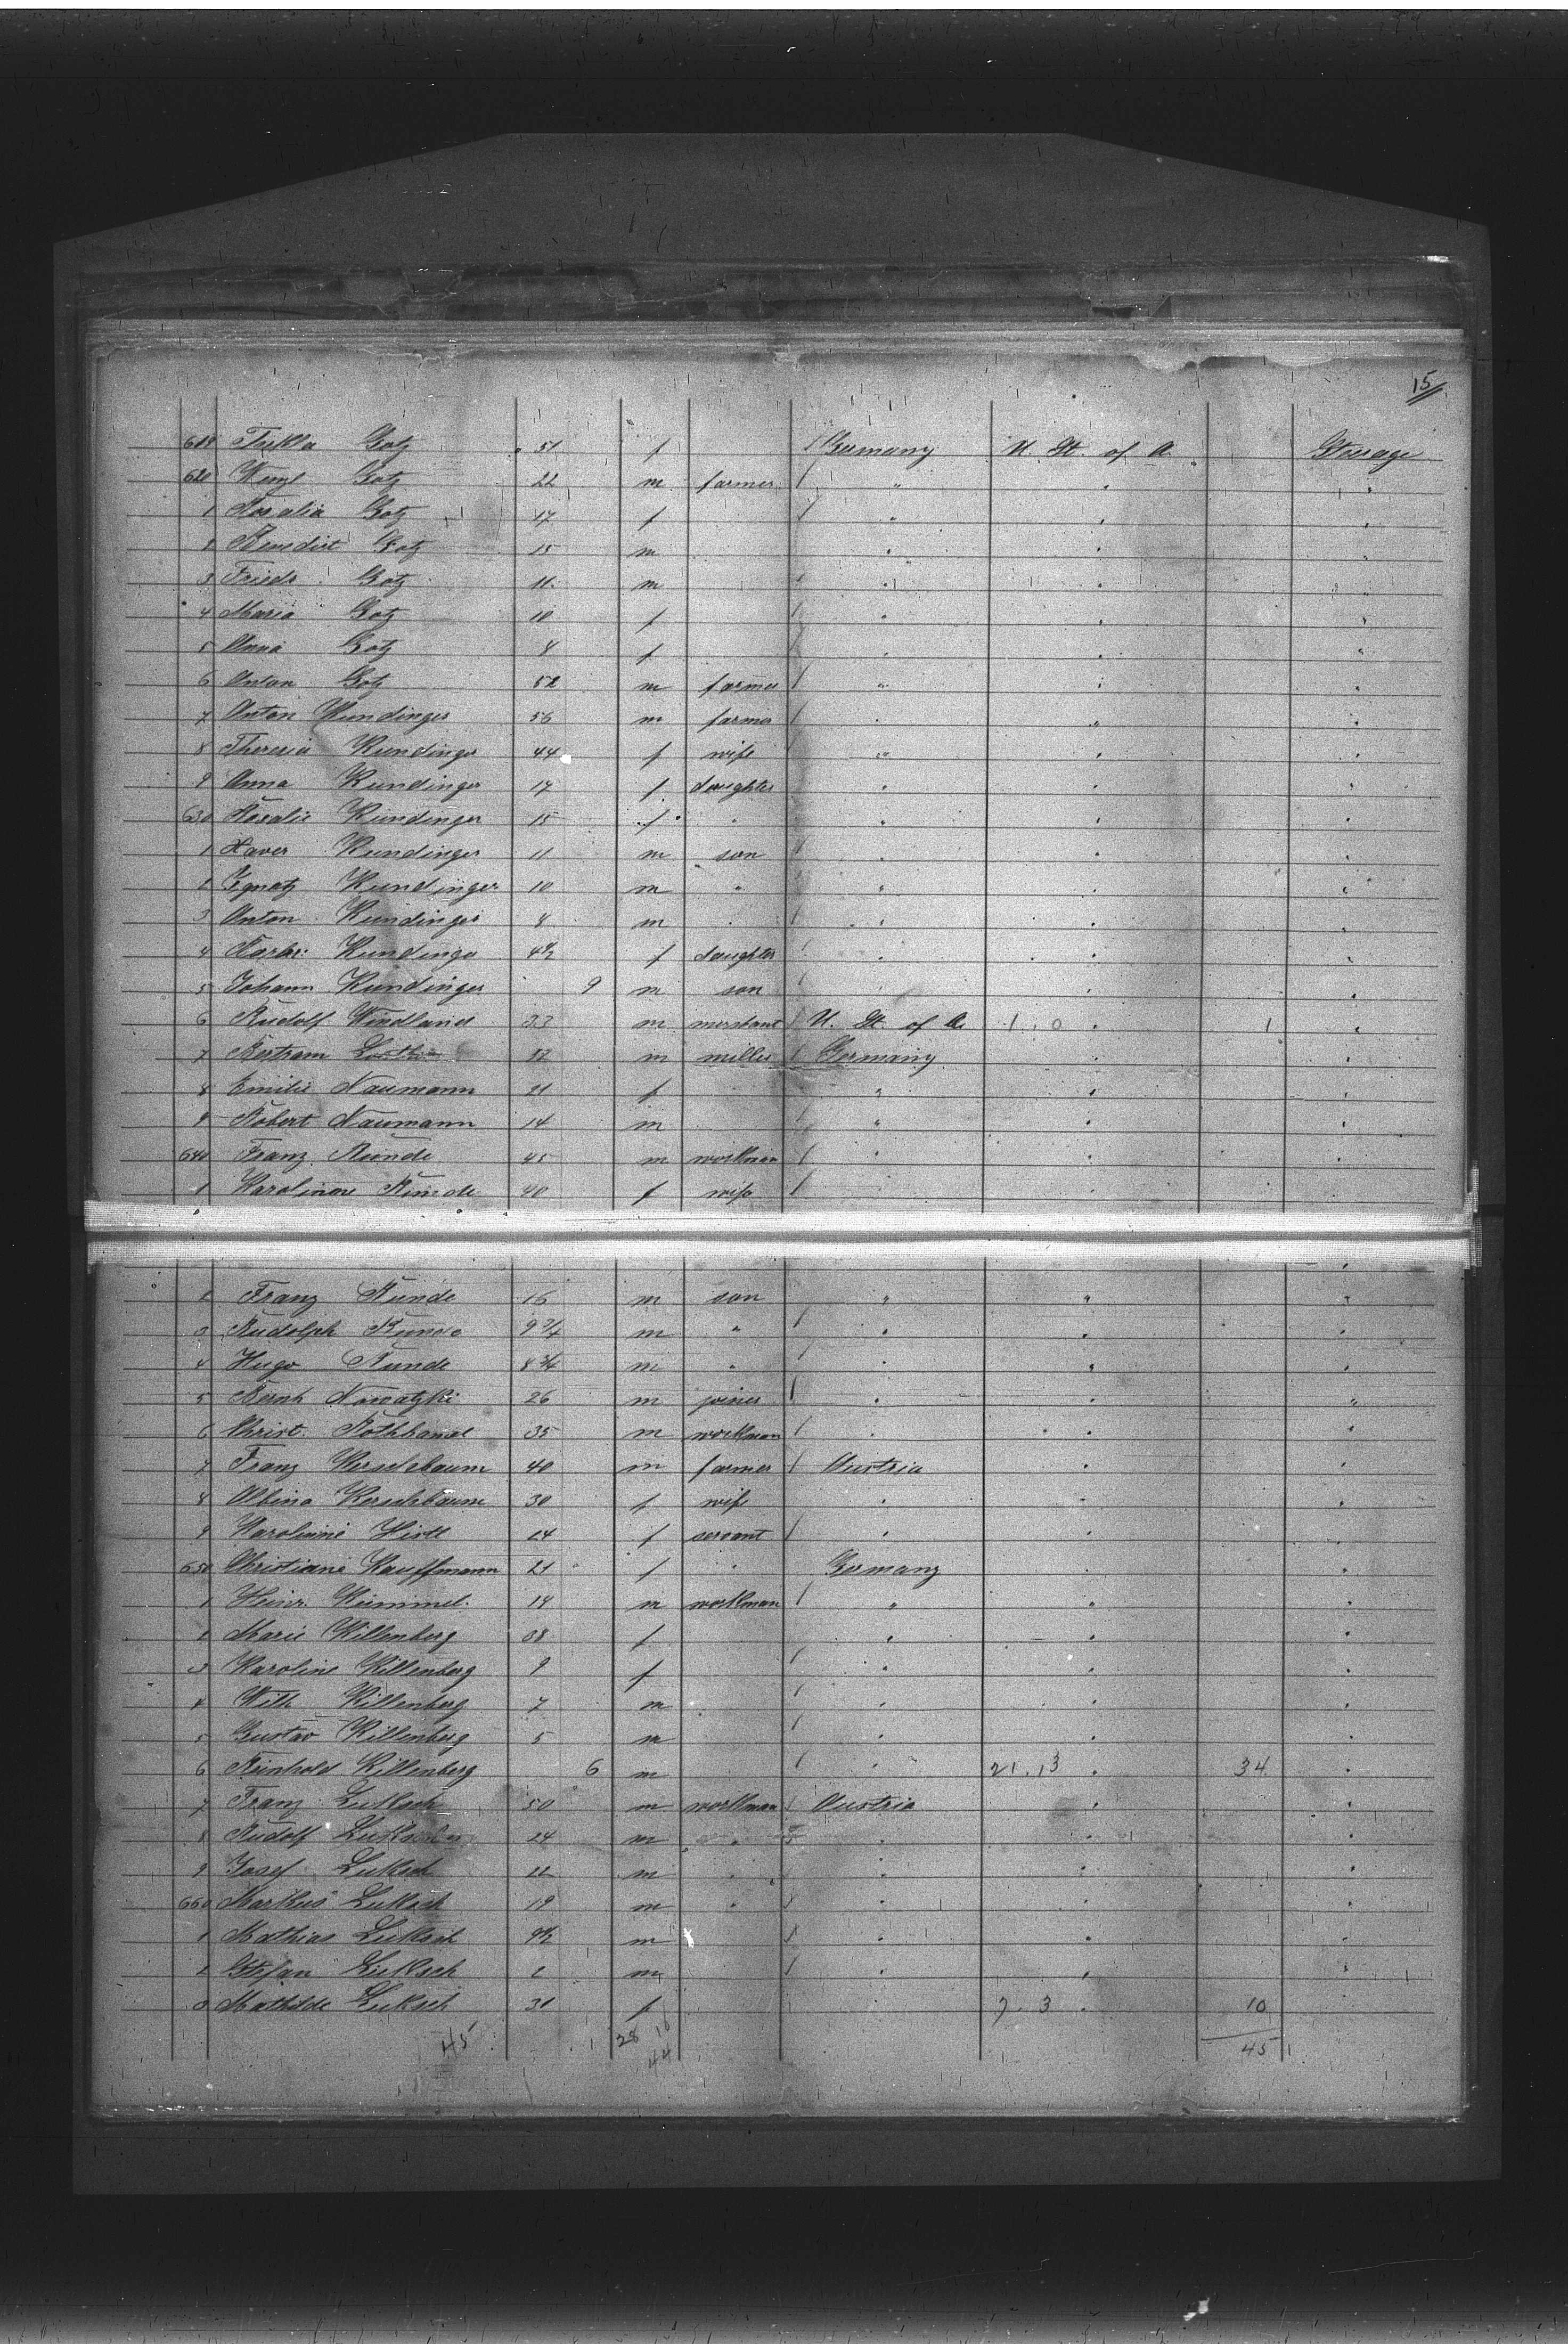 15
619 Thekla Gotz 51 f Germany U. St. of A. Steerage
620 Wenzl Gotz 22 m farmer " " "
1 Rosalia Gotz 17 f " " "
2 Benedict Gotz 15 m " " "
3 Friedr. Gotz 11 m " " "
4 Maria Gotz 10 f " " "
5 Anna Gotz 8 f " " "
6 Anton Gotz 52 m farmer " " "
7 Anton Kundinger 56 m farmer " " "
8 Theresia Kundinger 44 f wife " " "
9 Anna Kundinger 17 f daughter " " "
630 Rosalie Kundinger 15 f " " " "
1 Xaver Kundinger 11 m son " " "
2 Ignatz Kundinger 10 m " " " "
3 Anton Kundinger 8 m " " " "
4 Barbr. Kundinger 4½ f daughter " " "
5 Johann Kundinger 9 m son " " "
6 Rudolf Windland 33 m merchant U. St. of A. 1. 0 " 1 "
7 Bertram 52 m miller Germany " "
8 Emilie Naumann 21 f " " "
9 Robert Naumann 14 m " " "
640 Franz Runde 45 m workman " " "
1 Karoline Runde 40 f wife
2 Franz Runde 16 m son " " "
3 Rudolph Runde 9¾ m " " " "
4 Hugo Runde 8¾ m " " " "
5 Bernh Nowatzki 26 m joiner " " "
6 Christ. 35 m workman " " "
7 Franz Kerschbaum 40 m farmer Austria " "
8 Albina Kerschbaum 30 f wife " " "
9 Karoline 24 f servant " " "
650 Christiane Kauffmann 21 f " Germany " "
1 Heinr. Kümmel 14 m workman " " "
2 Marie Killenberg 38 f " " "
3 Karoline Killenberg 9 f " " "
4 Wilh Killenberg 7 m " " "
5 Gustav Killenberg 5 m " " "
6 Reinhold Killenberg 6 m " 21. 13 " 34 "
7 Franz Luksch 50 m workman Austria " "
8 Rudolf Luksch 24 m " " " "
9 Josef Luksch 22 m " " " "
660 Markus Luksch 19 m " " " "
1 Mathias Luksch 9½ m " " "
2 Stefan Luksch 2 m " " "
3 Mathilde Luksch 31 f " 7. 3 " 10
45 1 28 16 45
44